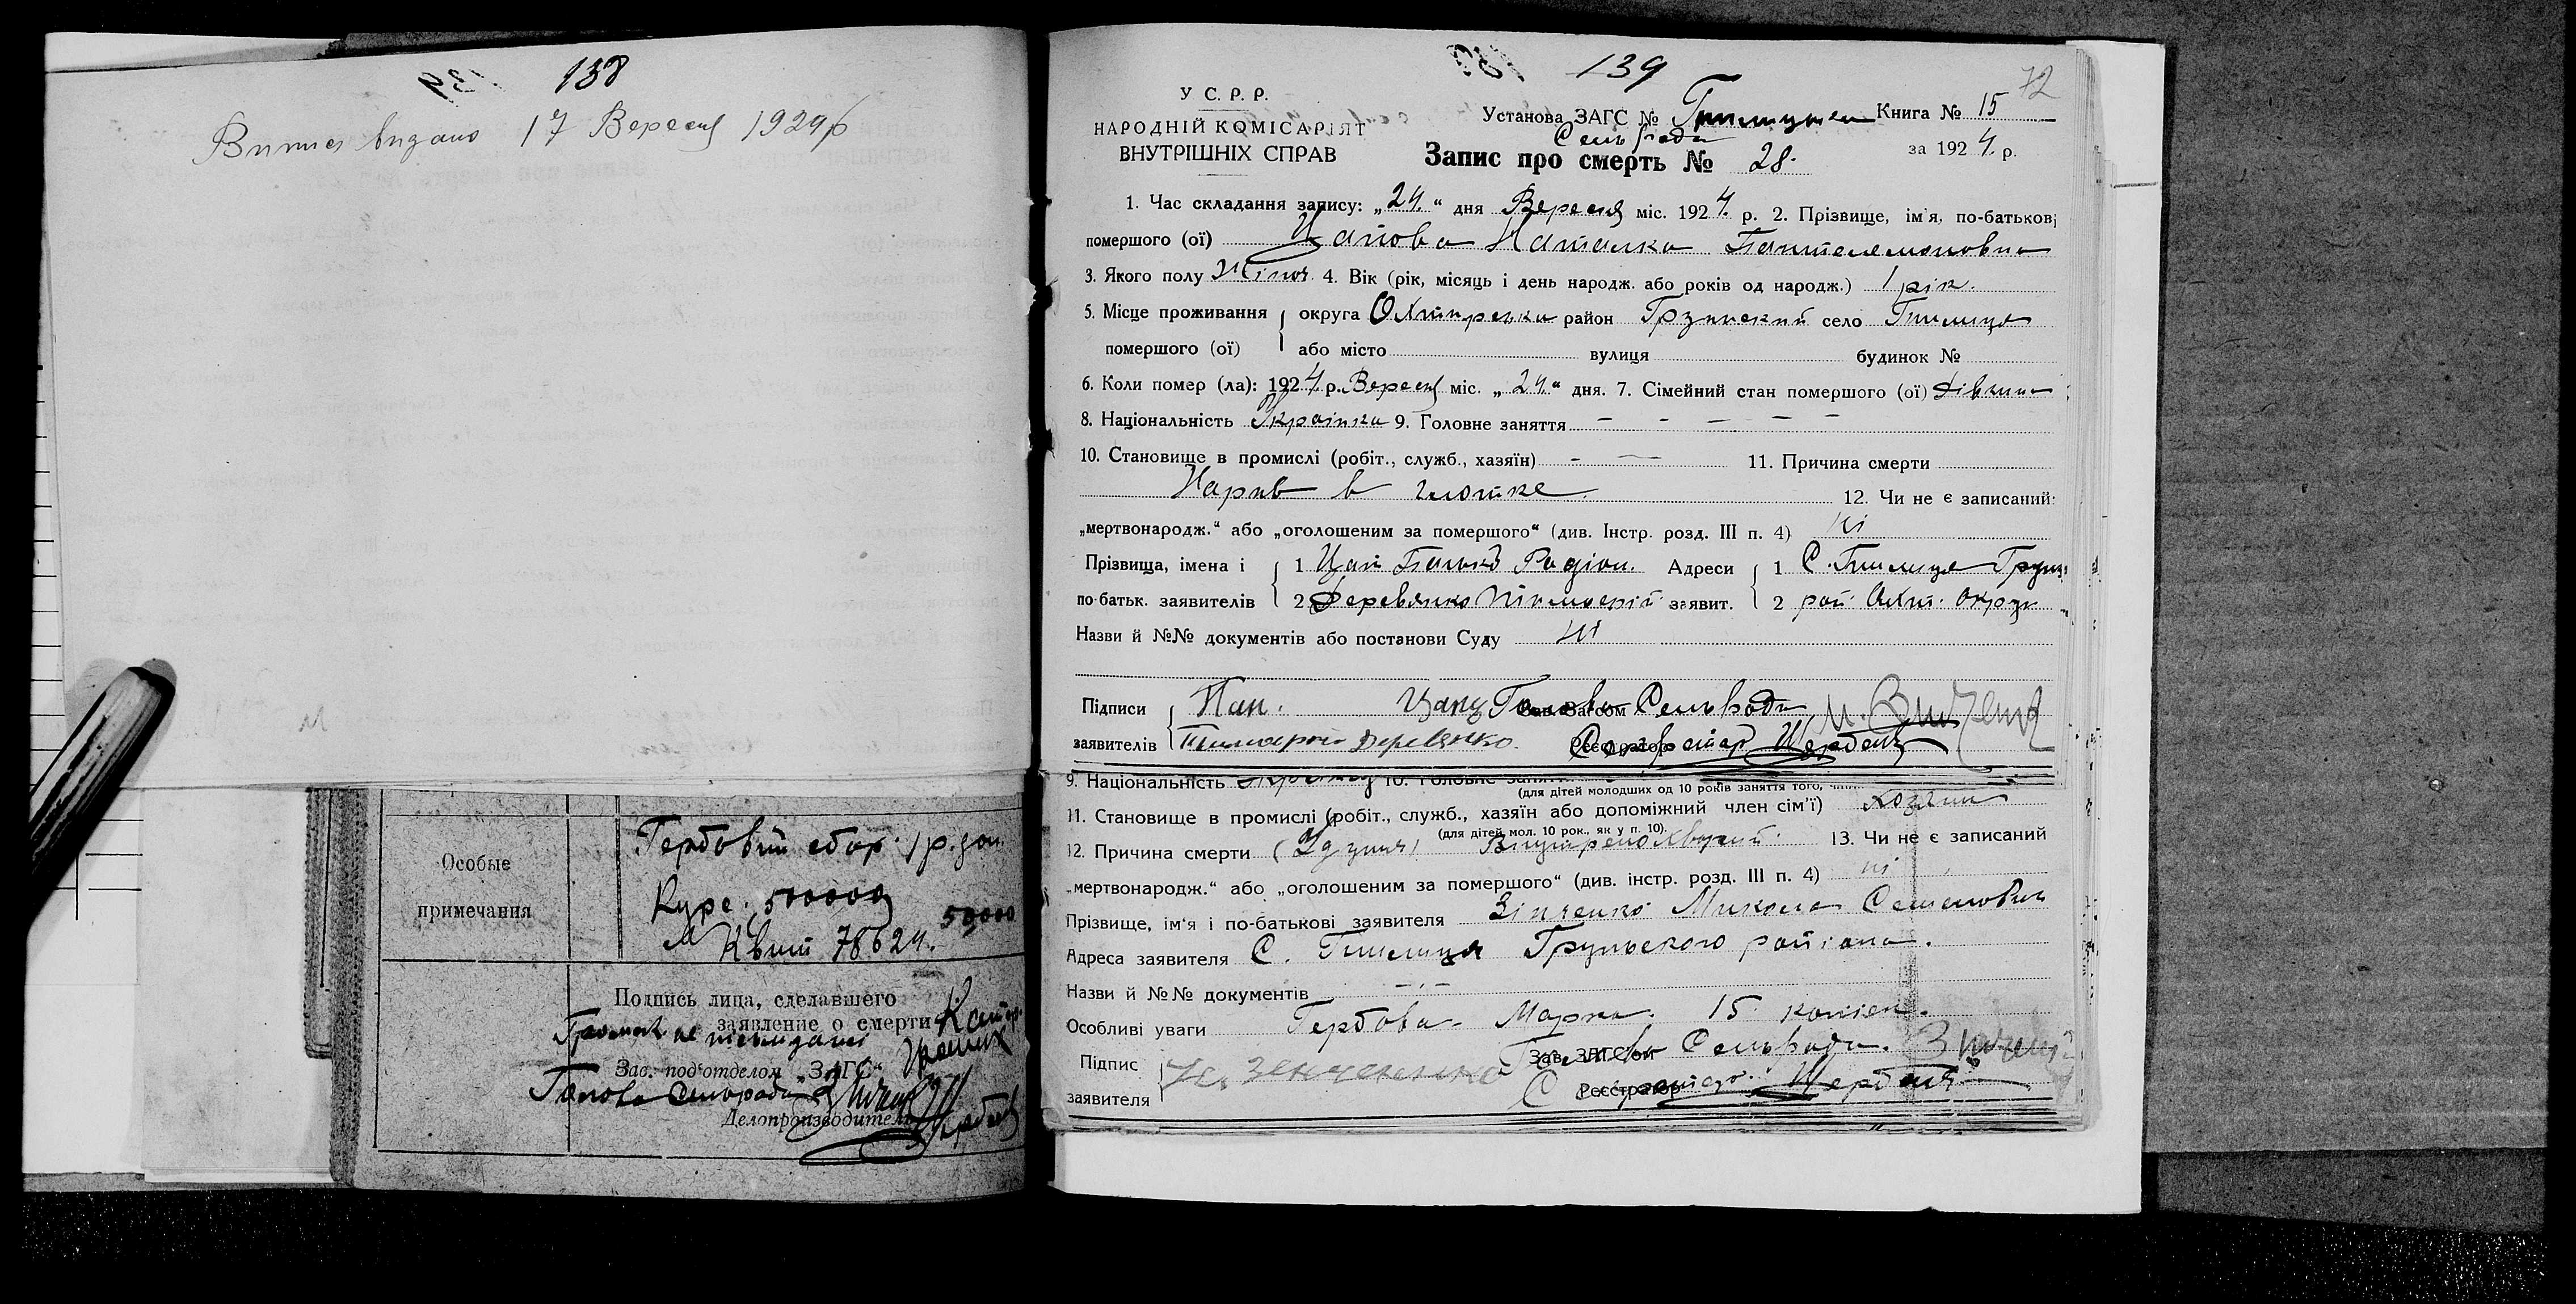 138
Випис видано 17 Вересня 1924 р
Особые
примечания
Гербовий сбор 1 р. зол.
Курс. 500000
50000
Квит 78624.
Подпись лица, сделавшего
заявление о смерти
Зав. под'отделом „ЗАГС“
Голова Сельради
Делопроизводитель
139
72
У С. Р. Р.
НАРОДНІЙ КОМІСАРІЯТ
ВНУТРІШНІХ СПРАВ
Установа ЗАГС № Книга № 15
Сельради
Запис про смерть № 28.
за 1924. р.
1. Час складання запису: „24.“ дня Вересня міс. 1924. р. 2. Прізвище, ім'я, по-батькові
помершого (ої) Цапова Наталка Пантелемоновна
3. Якого полу Жіноч. 4. Вік (рік, місяць і день народж. або років од народж.) 1 рік.
5. Місце проживання округа Охтирська район Грунський село
помершого (ої) або місто вулиця будинок №
6. Коли помер (ла): 1924 р. Вересня міс. „24.“ дня. 7. Сімейний стан помершого (ої) дівчина
8. Національність Українка 9. Головне заняття – – – – –
10. Становище в промислі (робіт., служб., хазяїн) – — 11. Причина смерти
Нарив в глотке.
12. Чи не є записаний
„мертвонародж.“ або „оголошеним за помершого“ (див. Інстр. розд. III п. 4) ні
Прізвища, імена і 1 Цап Родіон. Адреси 1 С.
по-батьк. заявителів 2 Деревянко заявит. 2 рай. Охт. Округи
Назви й №№ документів або постанови Суду ні
Підписи Пан. Цапу Голова Сельради
Зав. Загсом
заявителів Деревянко. Секретар Щербань
Реєстратор
9. Національність 10. Головне заняття
(для дітей молодших од 10 років заняття того,
11. Становище в промислі (робіт., служб., хазяїн або допоміжний член сім'ї) хозяин
(для дітей мол. 10 рок., як у п. 10).
12. Причина смерти 13. Чи не є записаний
„мертвонародж.“ або „оголошеним за помершого“ (див. інстр. розд. III п. 4) ні
Прізвище, ім'я і по-батькові заявителя Зінченко Микола Семенович
Адреса заявителя С. Груньского району.
Назви й №№ документів – . –
Особливі уваги Гербова Марка 15 копієк.
Підпис Голова Сельради.
Зав. ЗАГСом
заявителя Секретар. Щербань
Реєстратор